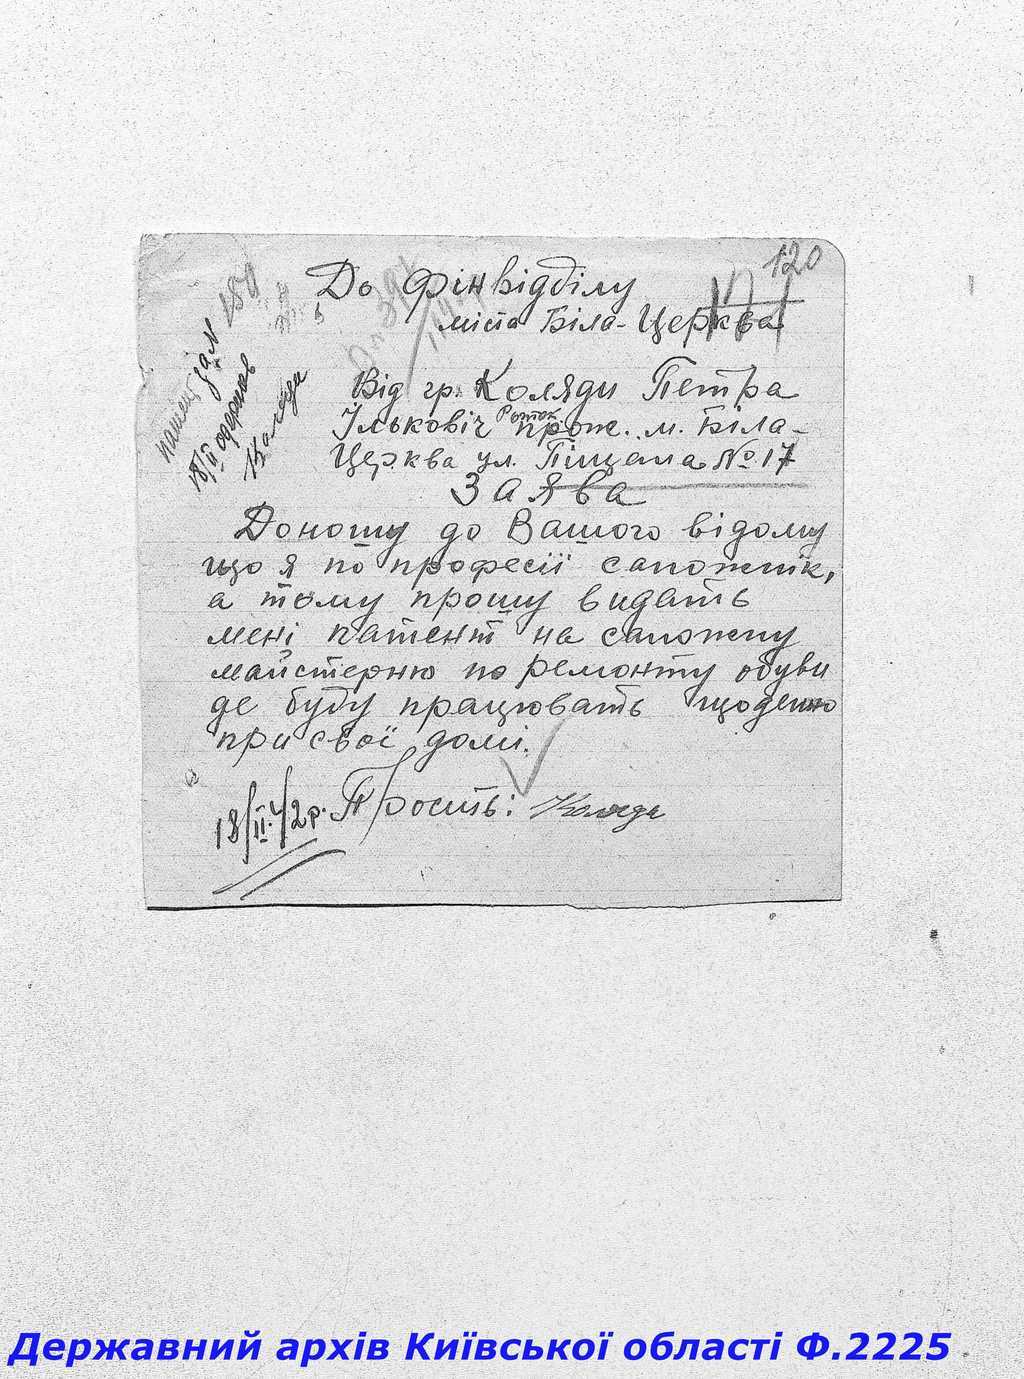 120
До Фінвідділу
міста Біла-Церква
Від гр. Коляди Петра
Ільковіч Роток прож. м. Біла-
Церква ул. Піщана № 17
ЗАЯВа
Доношу до Вашого відому
що я по професії сапожнік,
а тому прошу видать
мені патент на сапожну
майстерню по ремонту обуви
де буду працювать щоденно
при своі домі.
18/II.42р. Просить: Коляда
патент 
18/II одержав
Коляда
Державний архів Київської області Ф.2225